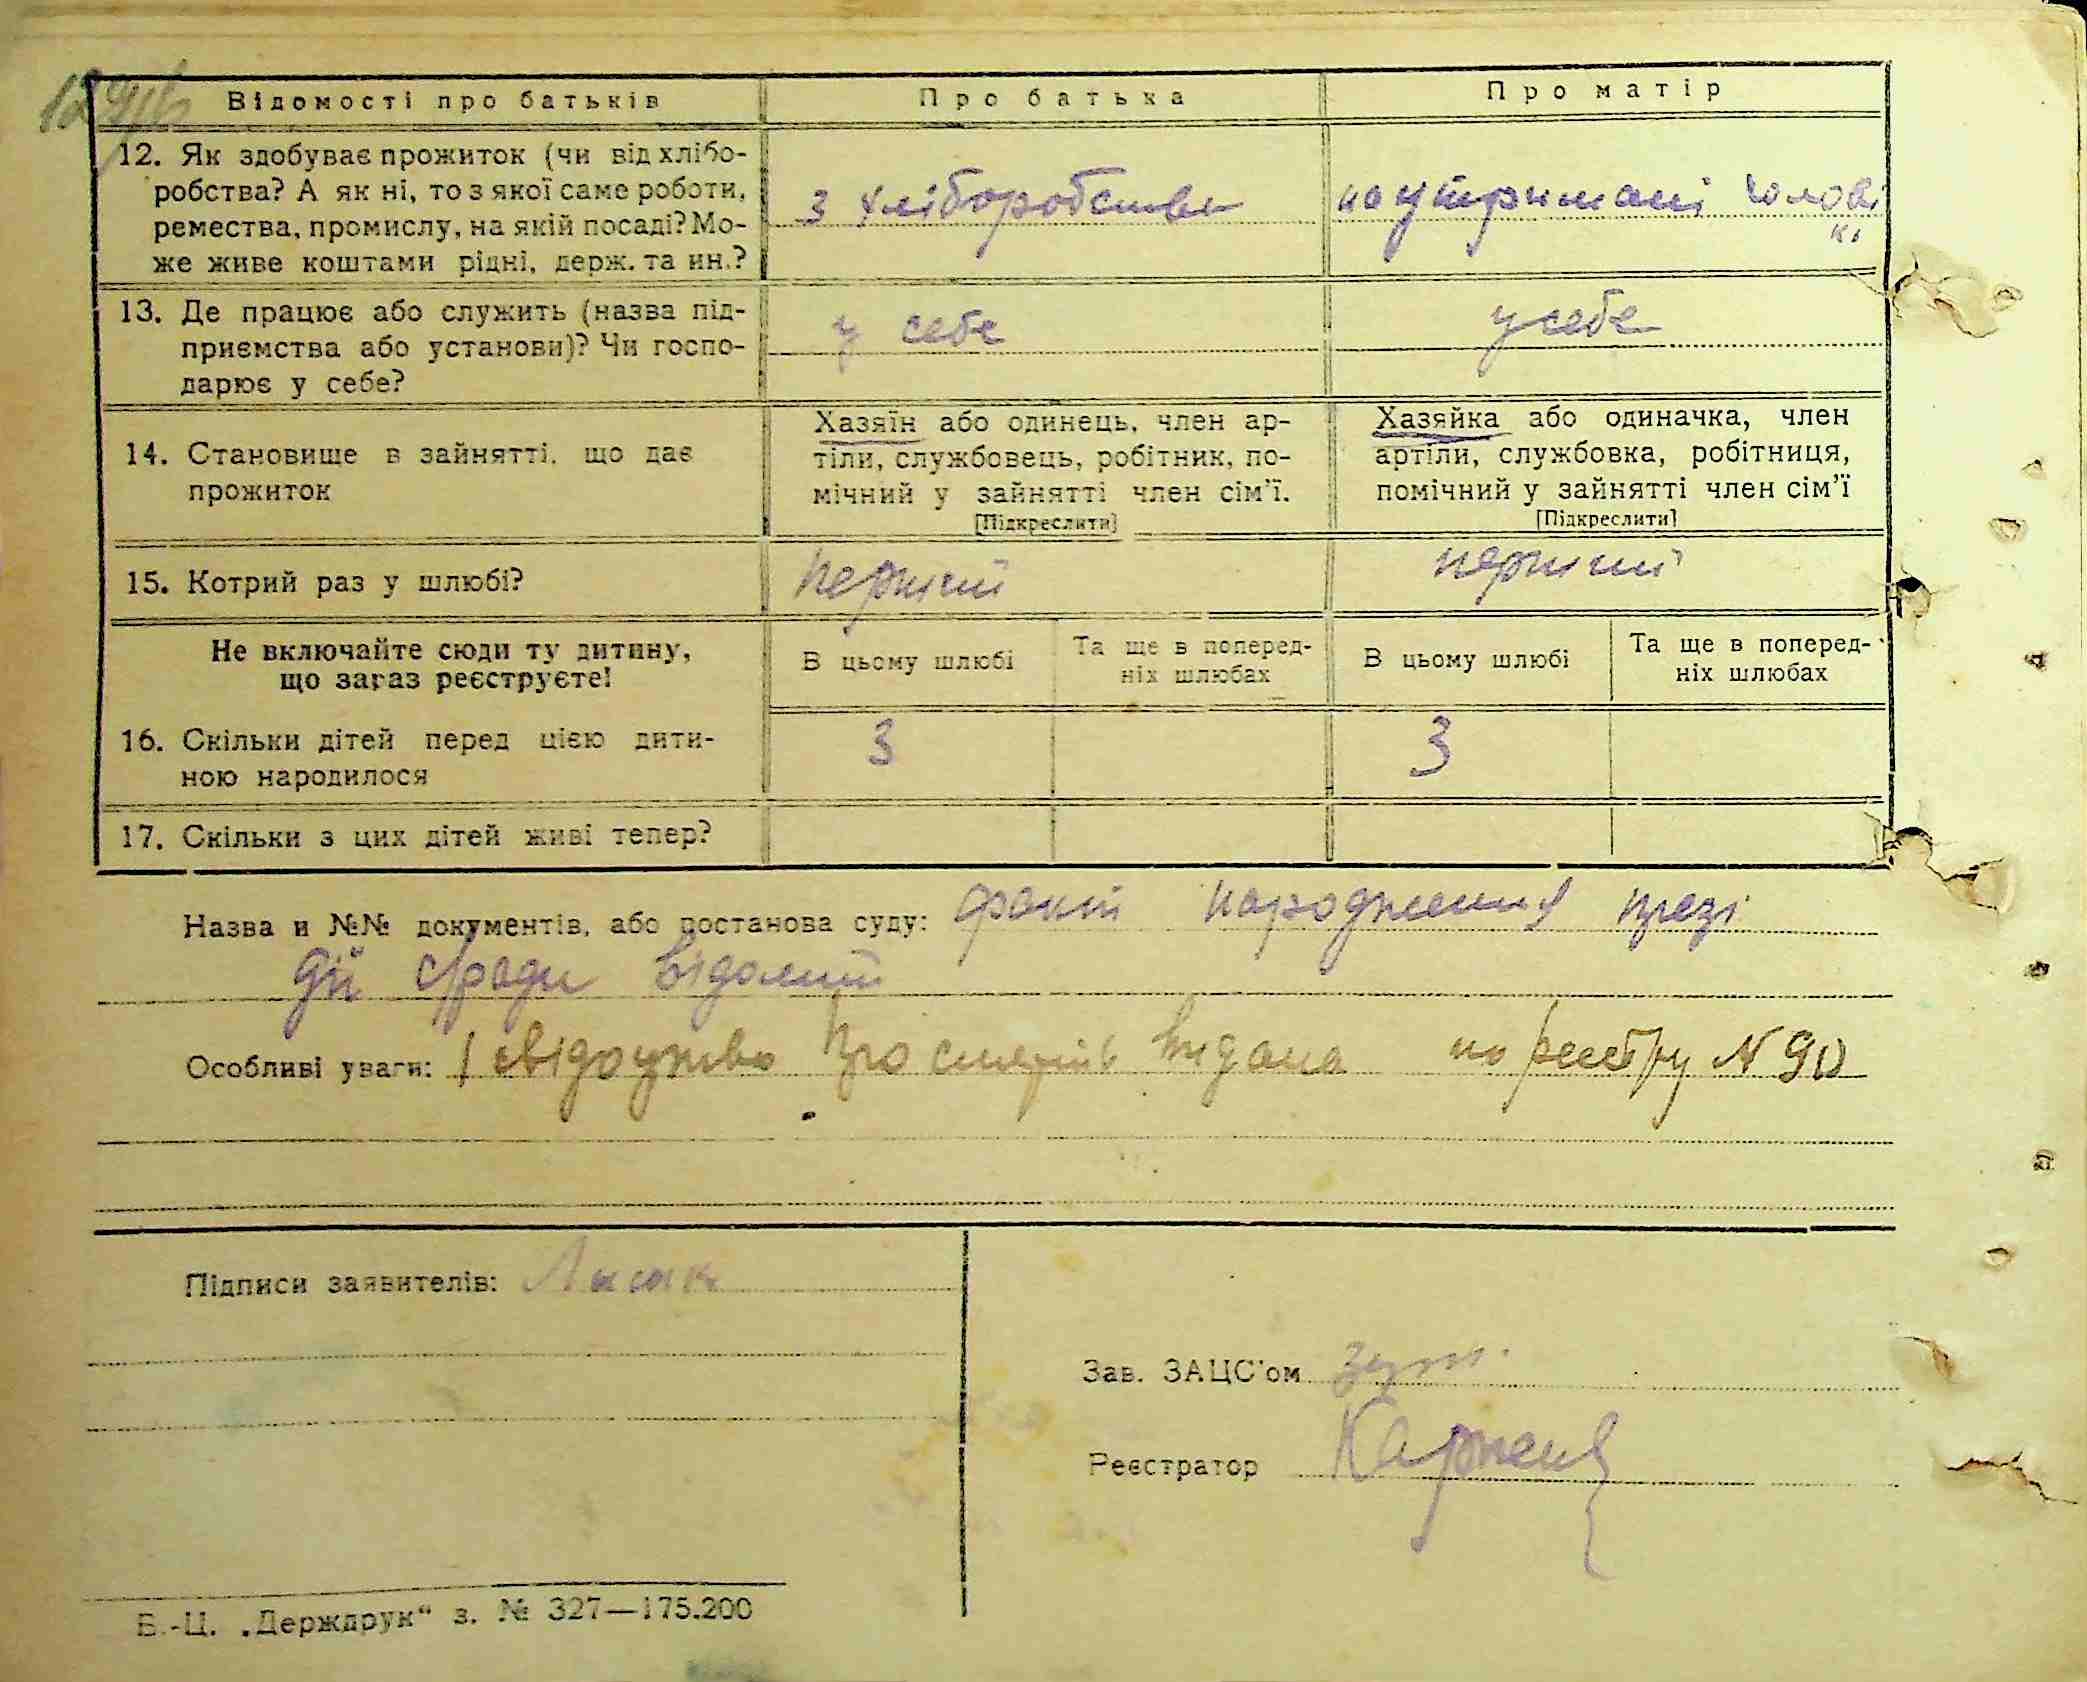 Відомості про батьків Про батька Про матір
12. Як здобуває прожиток (чи від хлібо-
робства? А як ні, то з якої саме роботи,
ремества, промислу, на якій посаді? Мо-
же живе коштами рідні, держ. та ин.?
з хліборобства
на утримані чолові
кі
13. Де працює або служить (назва під-
приємства або установи)? Чи госпо-
дарює у себе?
у себе
у себе
14. Становище в зайнятті, що дає
прожиток
Хазяїн або одинець, член ар-
тіли, службовець, робітник, по-
мічний у зайнятті член сім'ї.
[Підкреслити]
Хазяйка або одиначка, член
артіли, службовка, робітниця,
помічний у зайнятті член сім'ї
[Підкреслити]
15. Котрий раз у шлюбі?
перший
перший
Не включайте сюди ту дитину,
що зараз реєструєте!
В цьому шлюбі
Та ще в поперед-
ніх шлюбах
В цьому шлюбі
Та ще в поперед-
ніх шлюбах
16. Скільки дітей перед цією дити-
ною народилося
3
3
17. Скільки з цих дітей живі тепер?
Назва и №№ документів, або постанова суду: факт народження презі
дії сради відомий
Особливі уваги: свідоцтво про смерть видана по реєстру N 90
Підписи заявителів: Лисак
Зав. ЗАЦС'ом
Реєстратор
В.-Ц. „Держдрук“ з. № 327—175.200